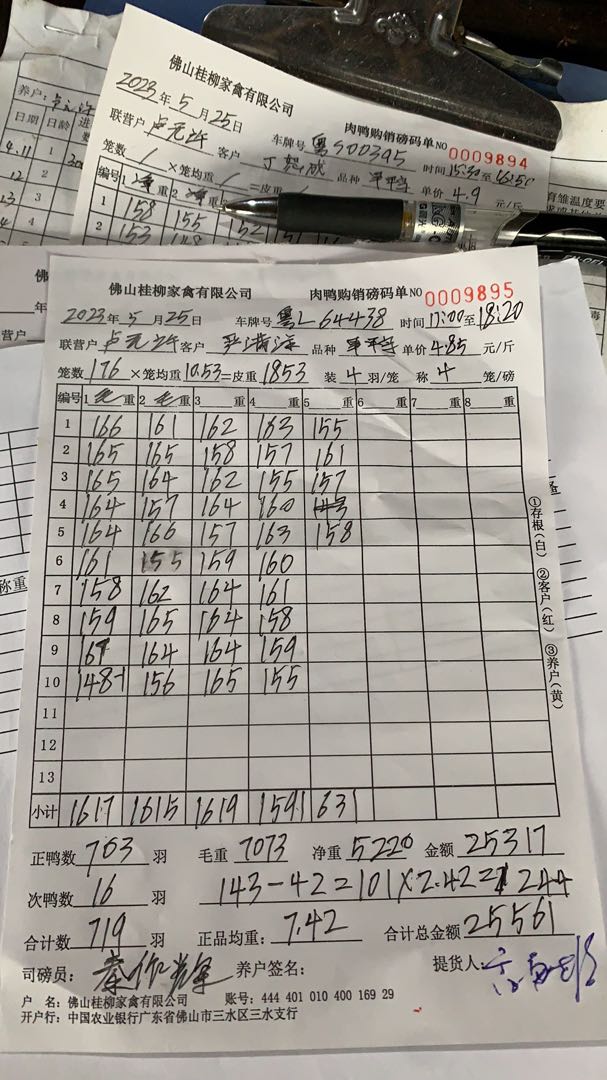 养户：
日期 日龄 进
4.11 1
12 2
13 3
4
5
佛山桂柳家禽有限公司
肉鸭购销磅码单NO 0009894
2023年5月25日
车牌号 粤S00395 时间15:30至16:50
联营户 客户 品种 单价4.9 元/斤
笼数 / ×笼均重 / =皮重 /
编号 1 重 2 重
1 158 155 152
2 153
育雏温度要
佛山桂柳家禽有限公司 肉鸭购销磅码单NO 0009895
2023年5月25日 车牌号 粤L64438 时间17:00至18:20
联营户 卢元许 客户 品种 单价4.85 元/斤
笼数176×笼均重10.53=皮重1853 装4羽/笼 称4笼/磅
编号 1毛重 2毛重 3重 4重 5重 6重 7重 8重
1 166 161 162 163 155
2 165 165 158 157 161
3 165 164 162 155 157
4 164 157 164 160
5 164 166 157 163 158
6 161 155 159 160
7 158 162 164 161
8 159 165 164 158
9 164 164 159
10 148-1 156 165 155
11
12
13
小计 1617 1615 1619 1591 631
①存根(白) ②客户(红) ③养户(黄)
正鸭数 703 羽 毛重 7073 净重 5220 金额 25317
次鸭数 16 羽 143-42=101×2.42=244
合计数 719 羽 正品均重：7.42 合计总金额 25561
司磅员： 养户签名： 提货人：
户 名：佛山桂柳家禽有限公司 账号：444 401 010 400 169 29
开户行：中国农业银行广东省佛山市三水区三水支行
称重